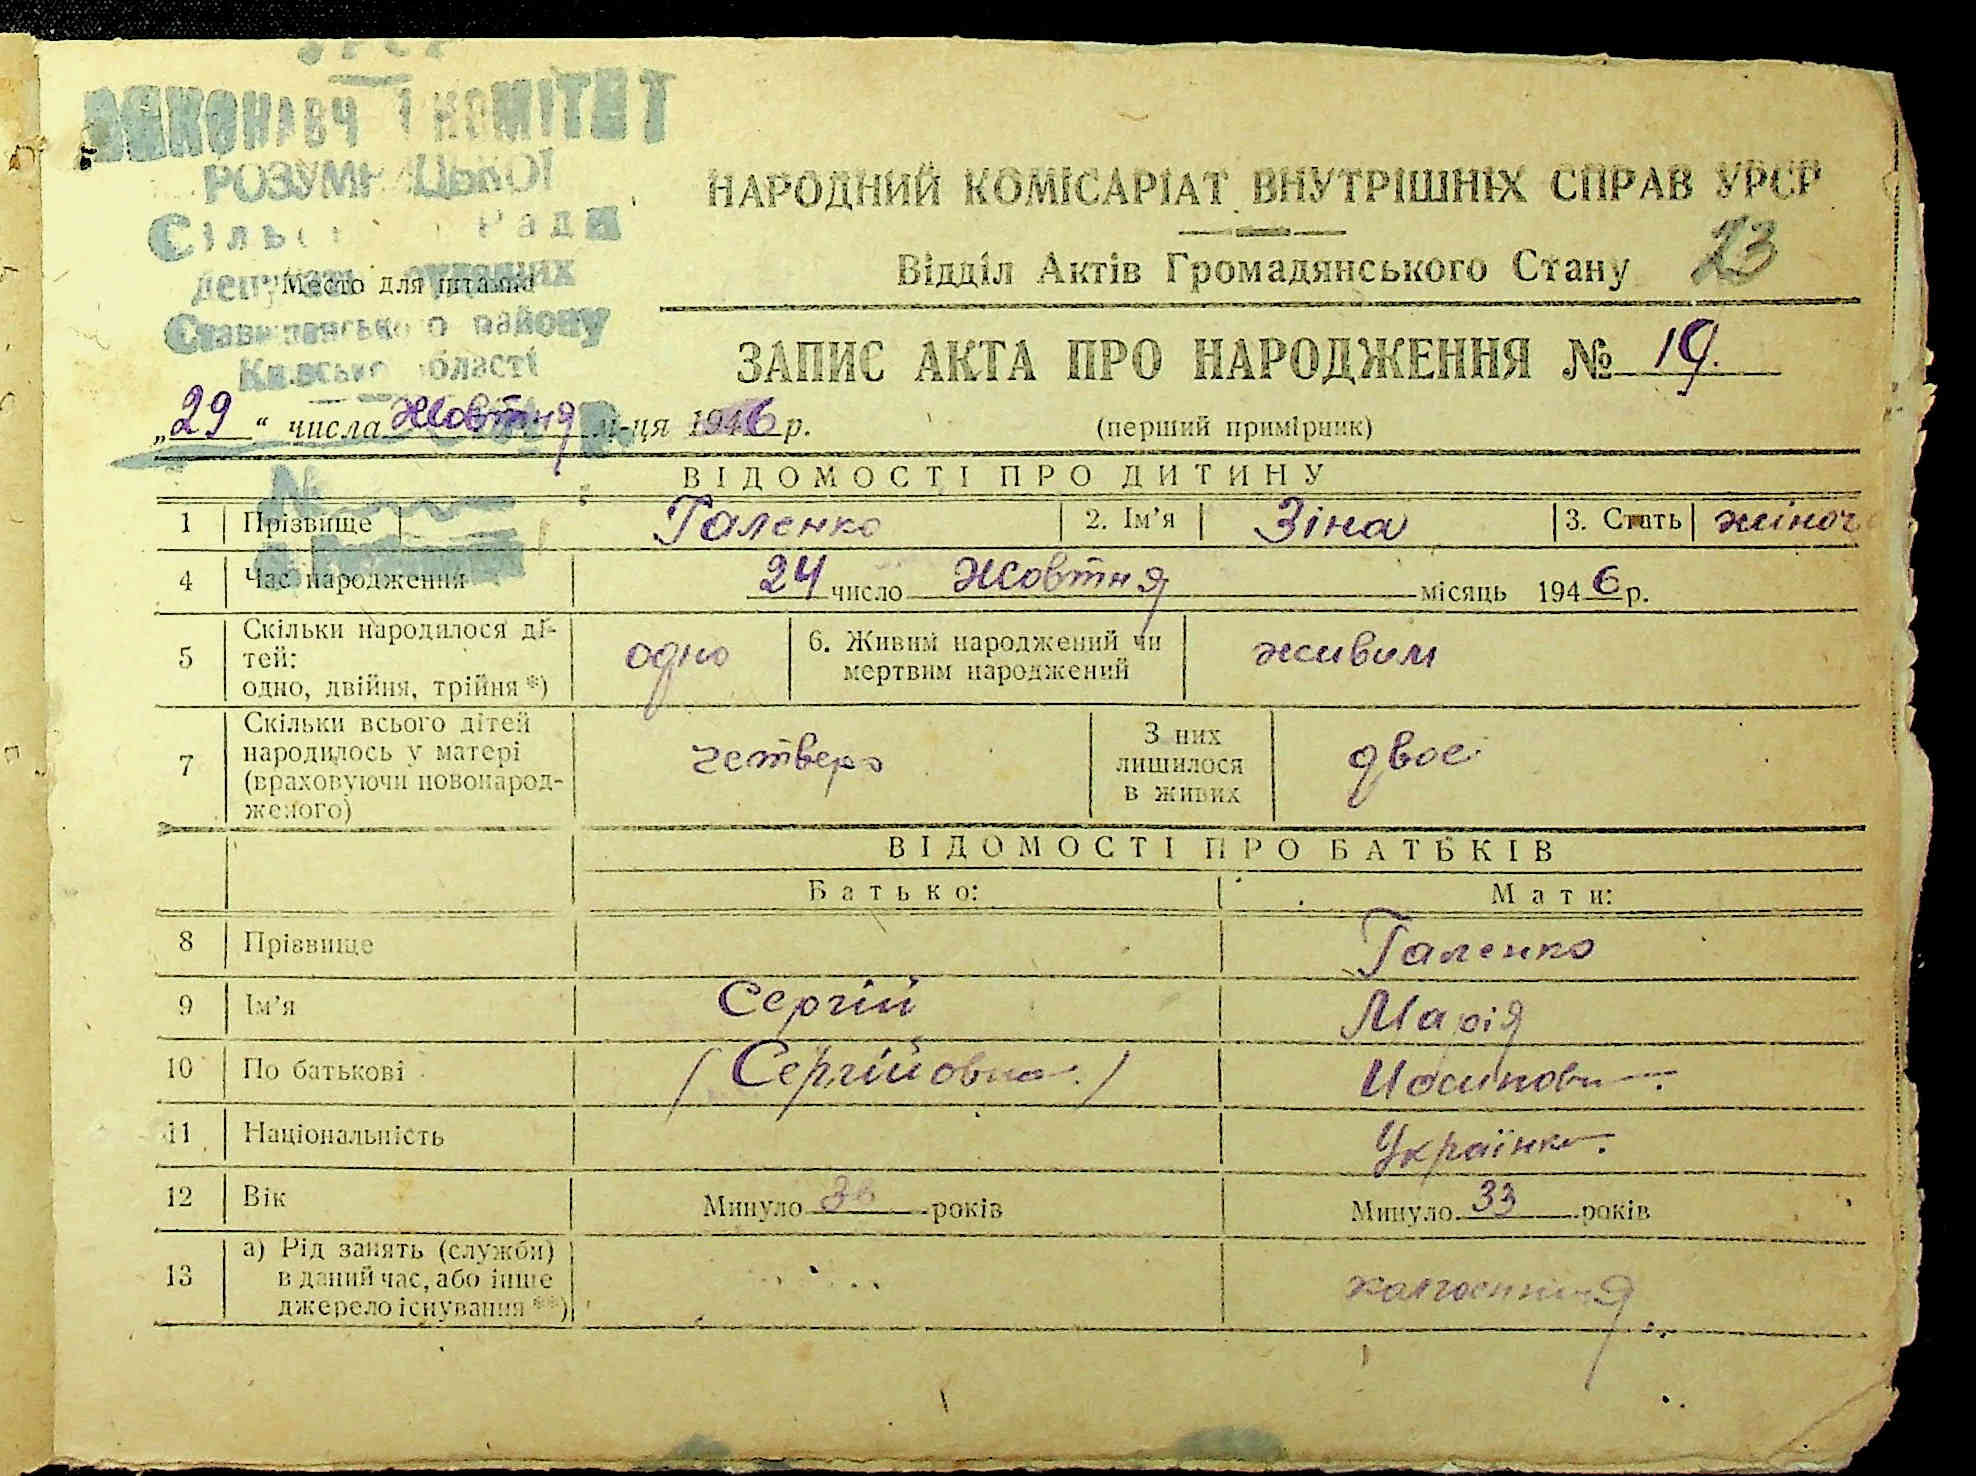 УРСР
ВИКОНАВЧ КОМІТЕТ
РОЗУМНИЦЬКОЇ
Сільс Рада
депутатів трудящих
Место для штампа
Ставищанського району
Київської області
НАРОДНИЙ КОМІСАРІАТ ВНУТРІШНІХ СПРАВ УРСР
Відділ Актів Громадянського Стану 23
ЗАПИС АКТА ПРО НАРОДЖЕННЯ № 19.
„29“ числа Жовтня м-ця 1946 р. (перший примірник)
ВІДОМОСТІ ПРО ДИТИНУ
№
1 Прізвище Галенко 2. Ім’я Зіна 3. Стать жіноч
4 Час народження 24 число Жовтня місяць 1946 р.
5 Скільки народилося ді-
тей:
одно, двійня, трійня *) одно 6. Живим народжений чи
мертвим народжений живим
7 Скільки всього дітей
народилось у матері
(враховуючи новонарод-
женого) четверо З них
лишилося
в живих двоє
ВІДОМОСТІ ПРО БАТЬКІВ
Батько: Мати:
8 Прізвище Галенко
9 Ім’я Сергій Марія
10 По батькові (Сергійовна.) Йосиповн
11 Національність Українка.
12 Вік Минуло років Минуло 33 років
13 а) Рід занять (служби)
в даний час, або інше
джерело існування **) колгоспниця